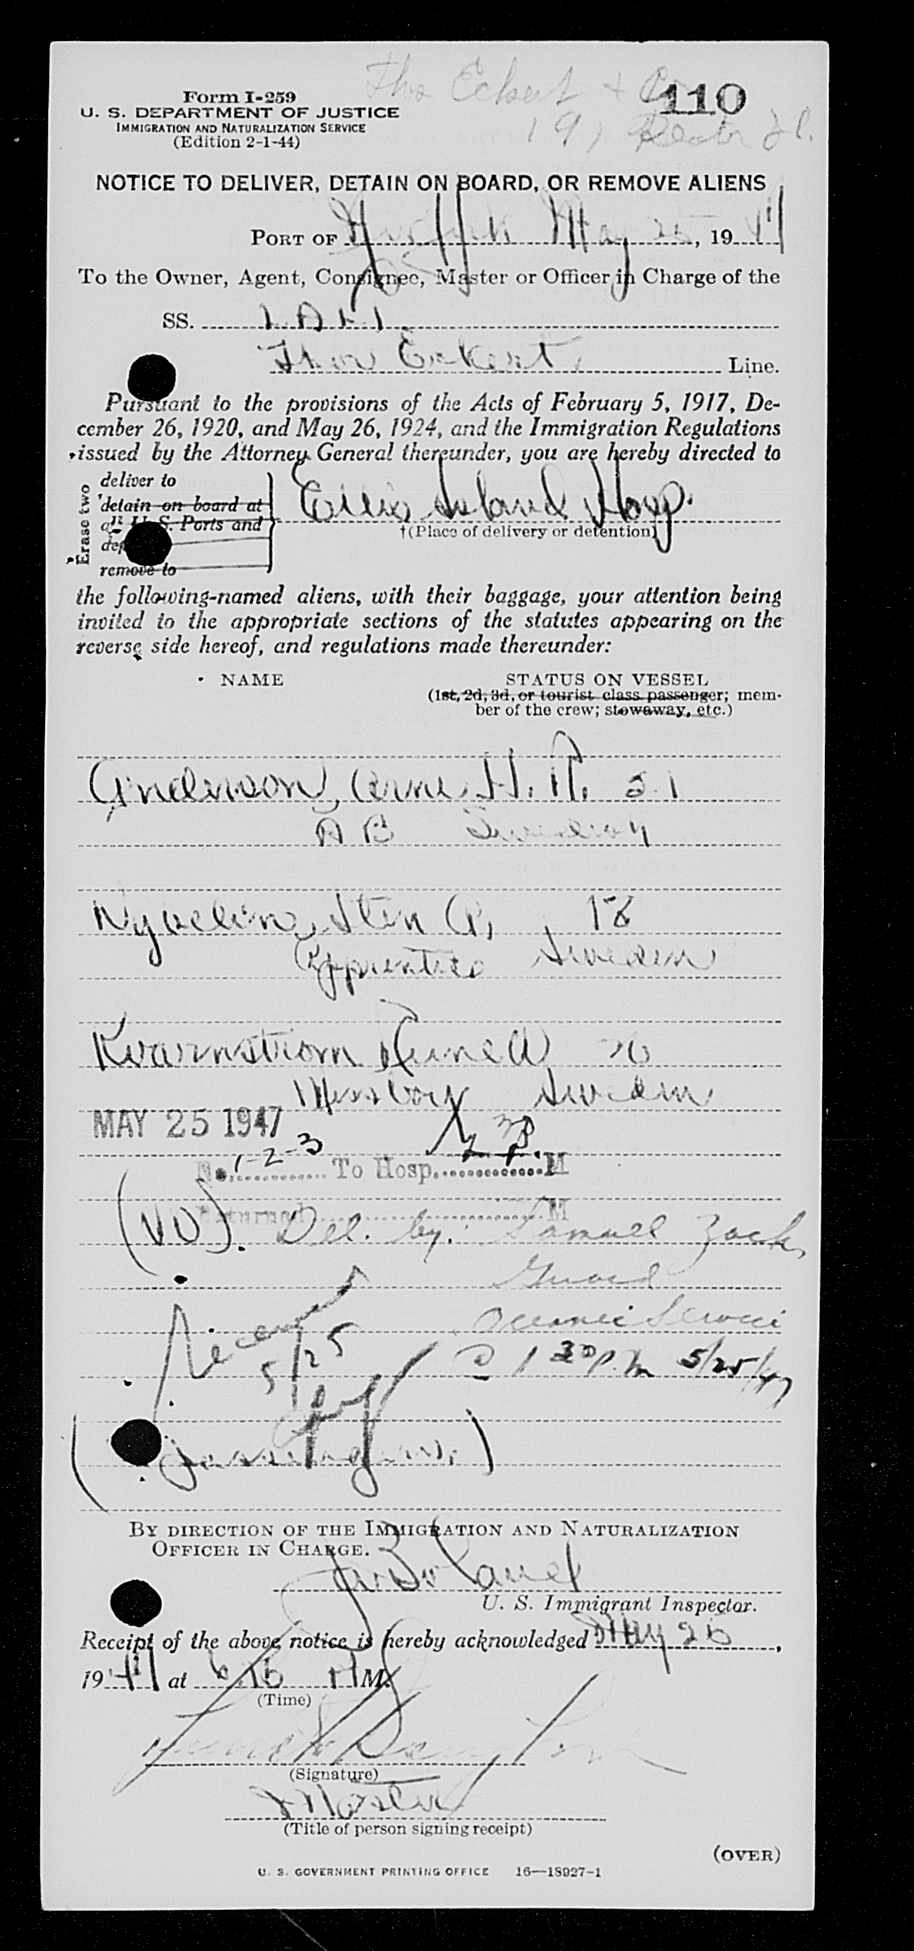 Thor Eckert & Co
110
19 Rector St.
Form I-259
U. S. DEPARTMENT OF JUSTICE
IMMIGRATION AND NATURALIZATION SERVICE
(Edition 2-1-44)
NOTICE TO DELIVER, DETAIN ON BOARD, OR REMOVE ALIENS
PORT OF New York May 25, 1947
To the Owner, Agent, Consignee, Master or Officer in Charge of the
SS.
Thor Eckert Line.
Pursuant to the provisions of the Acts of February 5, 1917, De-
cember 26, 1920, and May 26, 1924, and the Immigration Regulations
issued by the Attorney General thereunder, you are hereby directed to
Erase two
deliver to
detain on board at
all U. S. Ports and
remove to
Ellis Island Hosp.
†(Place of delivery or detention)
the following-named aliens, with their baggage, your attention being
invited to the appropriate sections of the statutes appearing on the
reverse side hereof, and regulations made thereunder:
NAME STATUS ON VESSEL
(1st, 2d, 3d, or tourist class passenger; mem-
ber of the crew; stowaway, etc.)
Anderson, Arne H. R. 21
A B Sweden
Nyvelin, Sten A, 18
Apprentice Sweden
Kvarnstrom
Messboy Sweden
MAY 25 1947
No. 1-2-3 To Hosp. M
Returned M
(VD). Del. by: Samuel Zack,
Guard
Oceanic Service
@ 1 30 P.M 5/25/47
Received
5/25
(Passengers.)
BY DIRECTION OF THE IMMIGRATION AND NATURALIZATION
OFFICER IN CHARGE.
U. S. Immigrant Inspector.
Receipt of the above notice is hereby acknowledged May 25,
1947 at M.
(Time)
(Signature)
Master
(Title of person signing receipt)
(OVER)
U. S. GOVERNMENT PRINTING OFFICE 16—18927-1